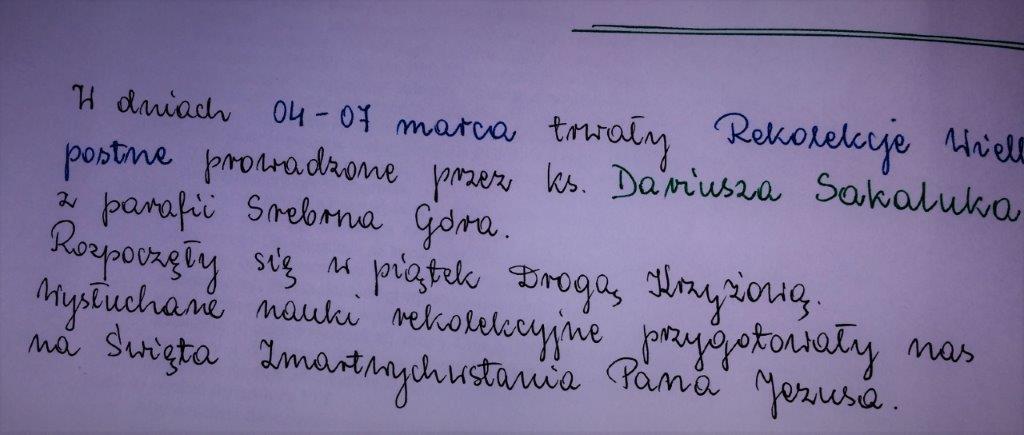 W dniach 04-07 marca trwały Rekolekcje Wielk
postne prowadzone przez ks. Dariusza Sakaluka
z parafii Srebrna Góra.
Rozpoczęły się w piątek Drogą Krzyżową.
Wysłuchane nauki rekolekcyjne przygotowały nas
na Święta Zmartwychwstania Pana Jezusa.